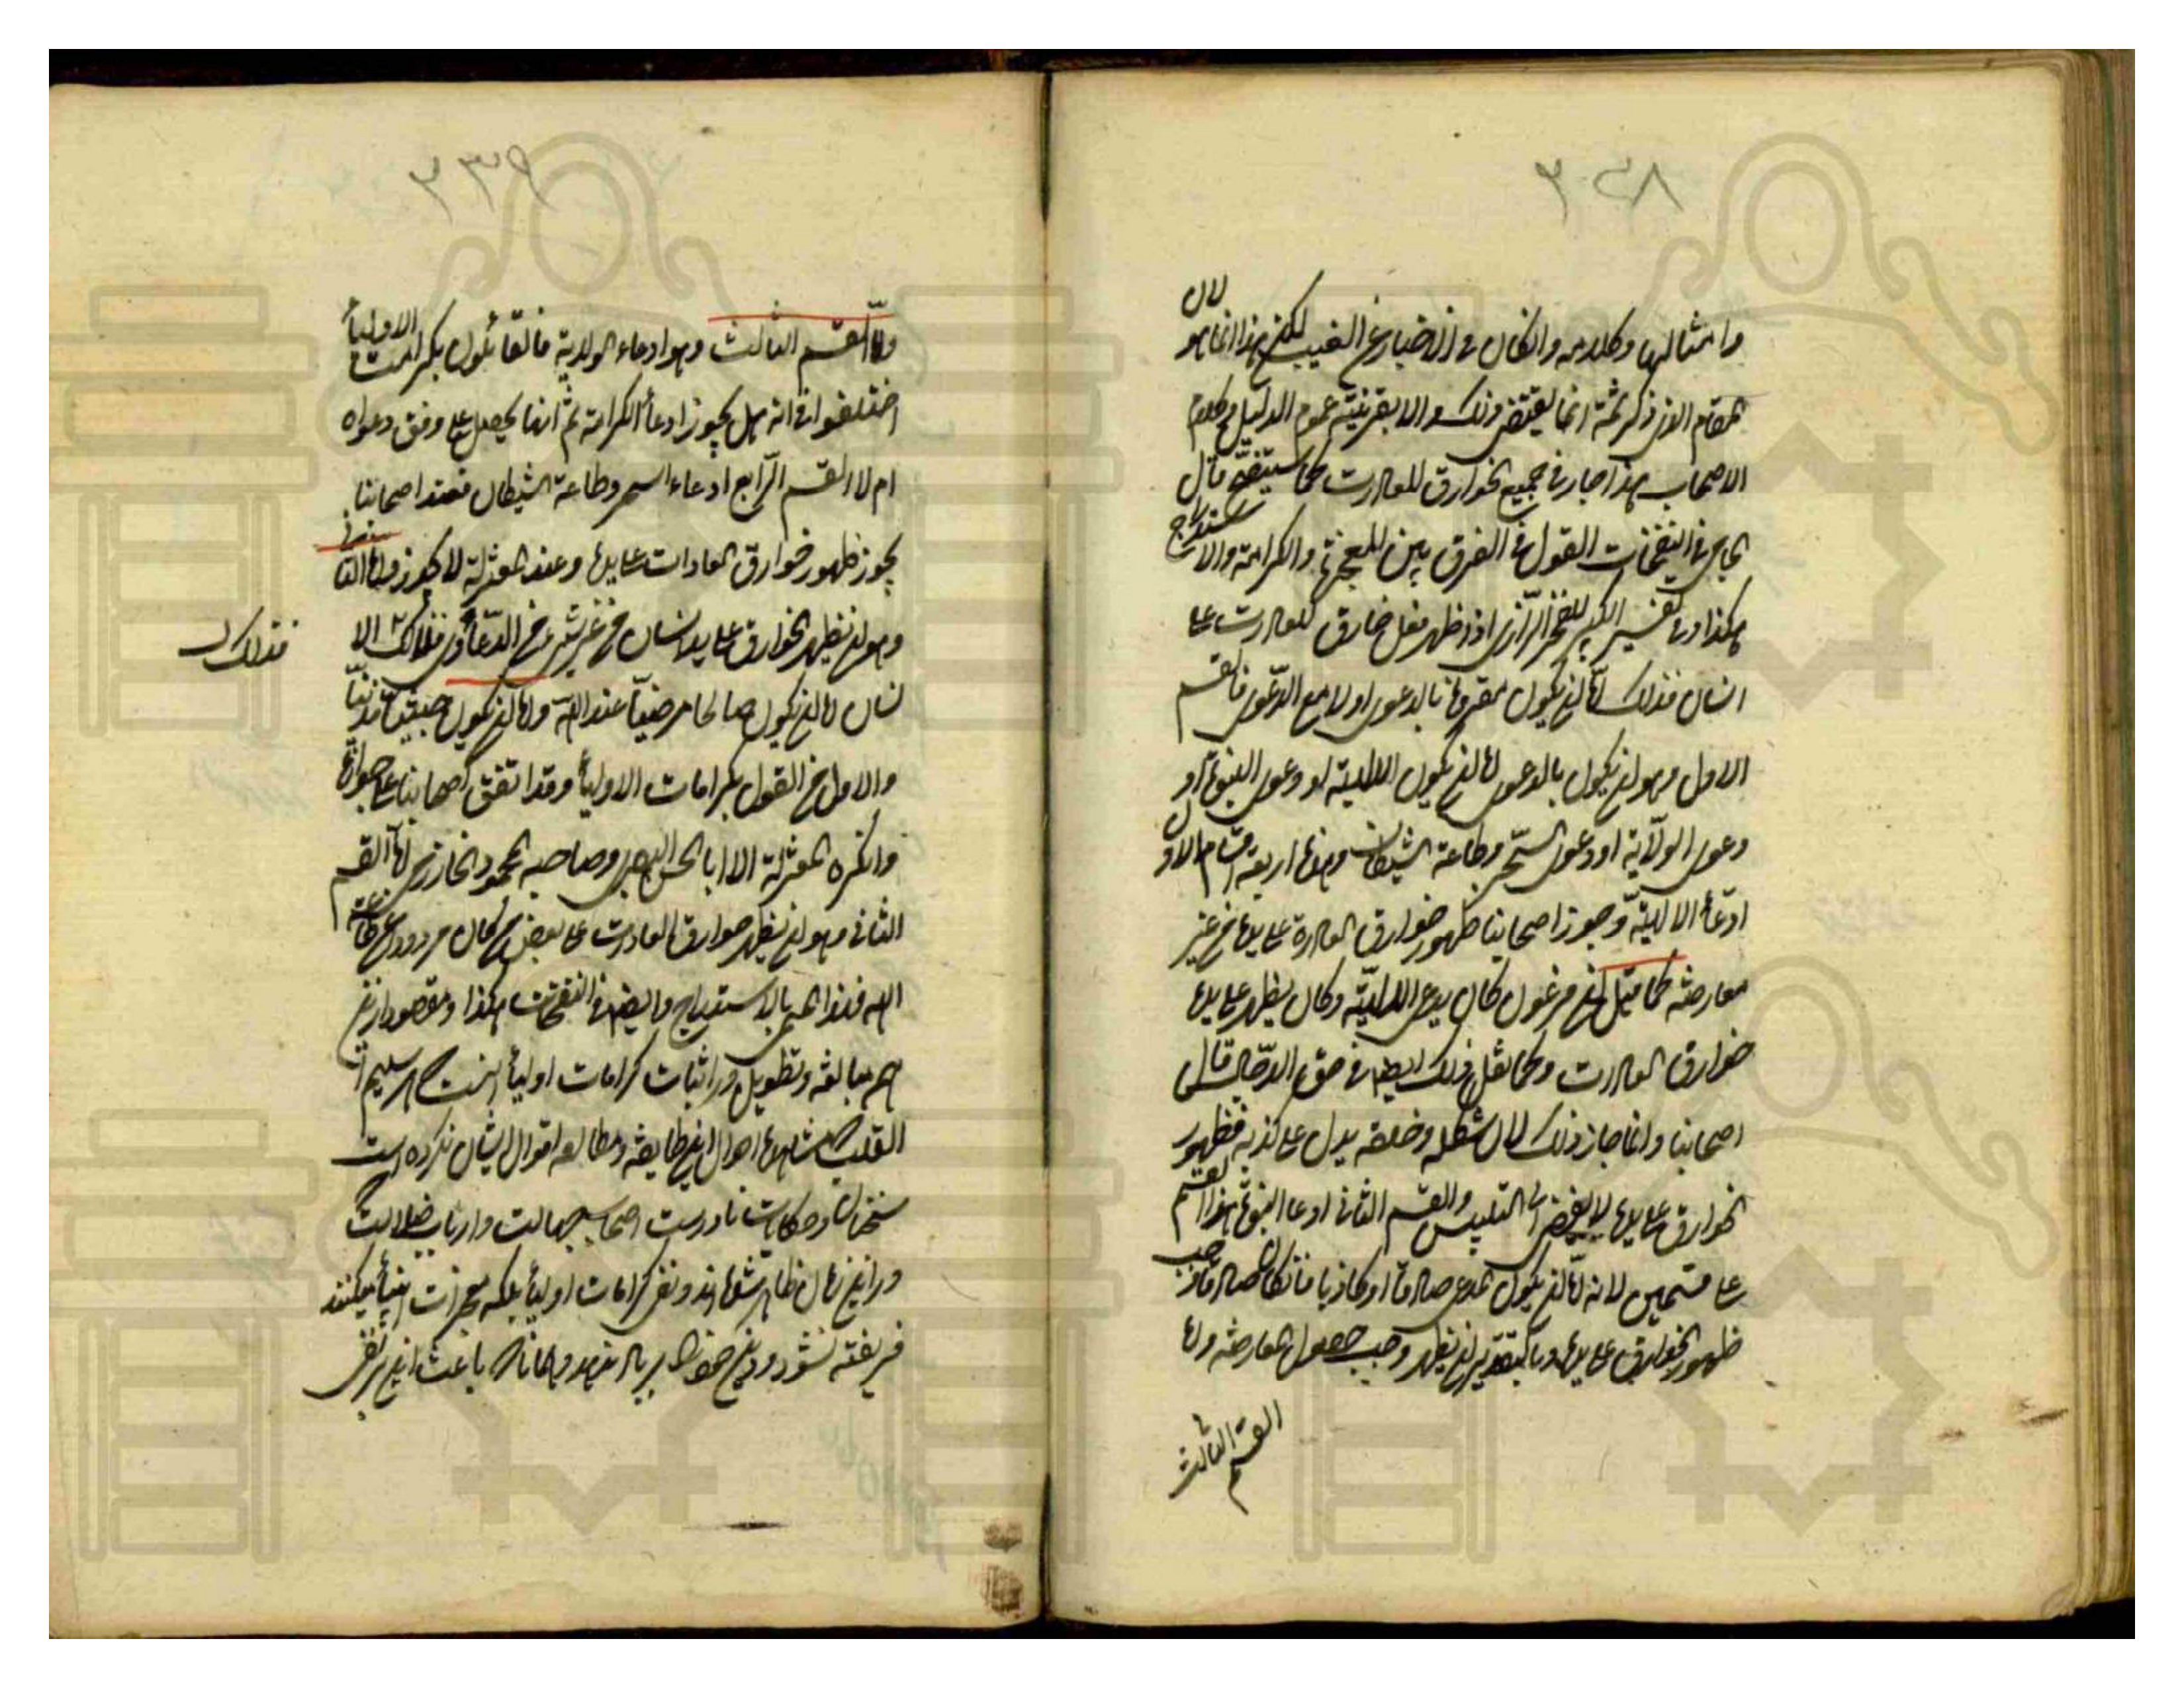 ۲۳۸
وامثالها وكلامه وان كان فى الاخبار عن الغيب لكن هذا انما هو لان
المقام الذى ذكر ثمة انما يقتضى ذلك والا بقرينة عموم الدليل وكلام
الاصحاب هذا جار فى جميع الخوارق للعادات كما ستتضح قال
الجامى فى النفحات القول فى الفرق بين المعجزة والكرامة والاستدراج
هكذا وفى تفسير الكبير للفخر الرازى اذا ظهر فعل خارق للعادات على
انسان فذلك اما ان يكون مقرونا بالدعوى اولا مع الدعوى فالقسم
الاول وهو ان يكون بالدعوى اما ان يكون الالهية او دعوى النبوة او
دعوى الولاية او دعوى السحر وطاعة الشيطان وهذه اربعة اقسام الاول
ادعاء الالهية وجوز اصحابنا ظهور خوارق العادة على يده من غير
معارضة كما قيل ان فرعون كان يدعى الالهية وكان يظهر على يده
خوارق العادات وكما نقل ذلك ايضا فى حق الدجال قال
اصحابنا وانما جاز ذلك لان شكله وخلقه يدل على كذبه فظهور
الخوارق على يده لا يفضى الى التلبيس والقسم الثانى ادعاء النبوة هذا القسم
على قسمين لانه اما ان يكون المدعى صادقا او كاذبا فان كان صادقا وجب
ظهور الخوارق على يده وبالتقدير ان يظهر وجب حصول المعارضة واما
القسم الثالث
۲۳۹
واما القسم الثالث وهو ادعاء الولاية فالقائلون بكرامت الاولياء
اختلفوا فى انه هل يجوز ادعاء الكرامة ثم انها يحصل على وفق دعواه
ام لا القسم الرابع ادعاء السحر وطاعة الشيطان فعند اصحابنا
يجوز ظهور خوارق العادات على يده وعند المعتزلة لا يجوز واما الثانى
وهو ان يظهر الخوارق على يد انسان من غير شىء من الدعاوى فذلك الا
فذلك
نسان اما ان يكون صالحا مرضيا عند الله واما ان يكون خبيثا مذنبا
والاول من القول بكرامات الاولياء وقد اتفق اصحابنا على جوازه
وانكره المعتزلة الا ابا الحسن البصرى وصاحبه محمود الخوارزمى اما القسم
الثانى وهو ان يظهر خوارق العادات على بعض من كان مردودا عن طاعة
الله فهذا المسمى بالاستدراج وايضا فى النفحات هكذا ومقصود ازين
همه مبالغه وتطويل در اثبات كرامات اولياء آنست كه هر سليم
القلب كه مشاهده احوال اين طايفه ومطالعه اقوال ايشان نكرده است
بسخنان وحكايات نادرست اصحاب جهالت وارباب ضلالت كه
درين زمان ظاهر شده اند ونفى كرامات اولياء بلكه معجزات انبياء ميكنند
فريفته نشود ودين خود را بر باد ندهد وهمانا كه باعث اين بر نفى